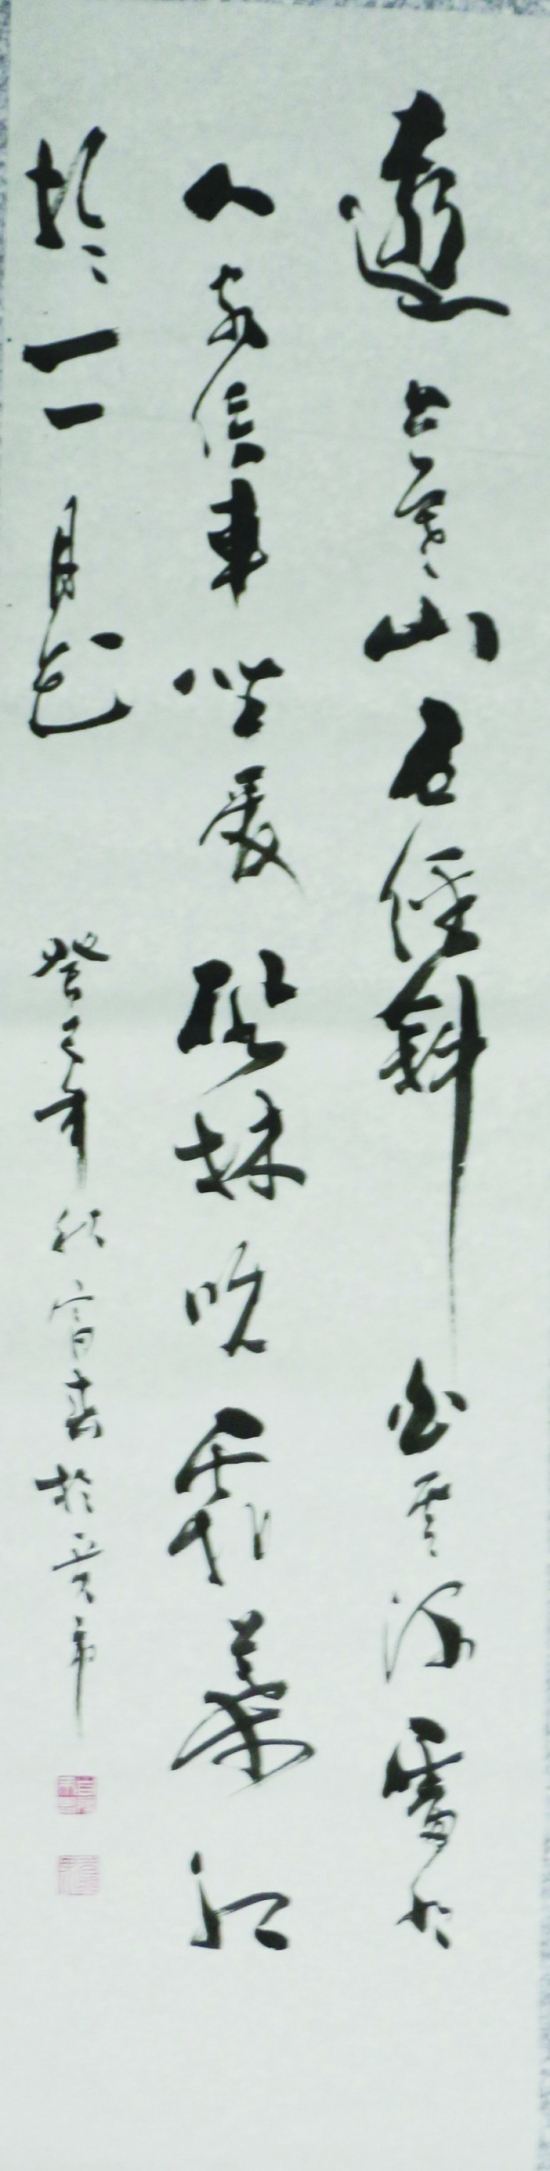 遠上寒山石徑斜白雲深處有
人家停車坐愛楓林晚霜葉紅
於二月花 癸巳年秋富春於